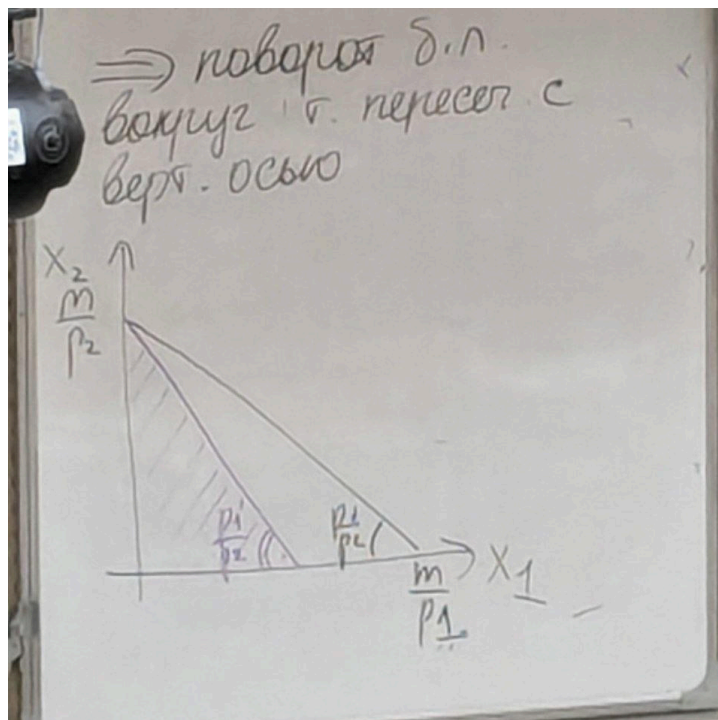 ⇒ поворот б.л.
вокруг т. пересеч. с
верт. осью
x₂
m
p₂
p1'
p₂
p1
p₂
x1
m
p1